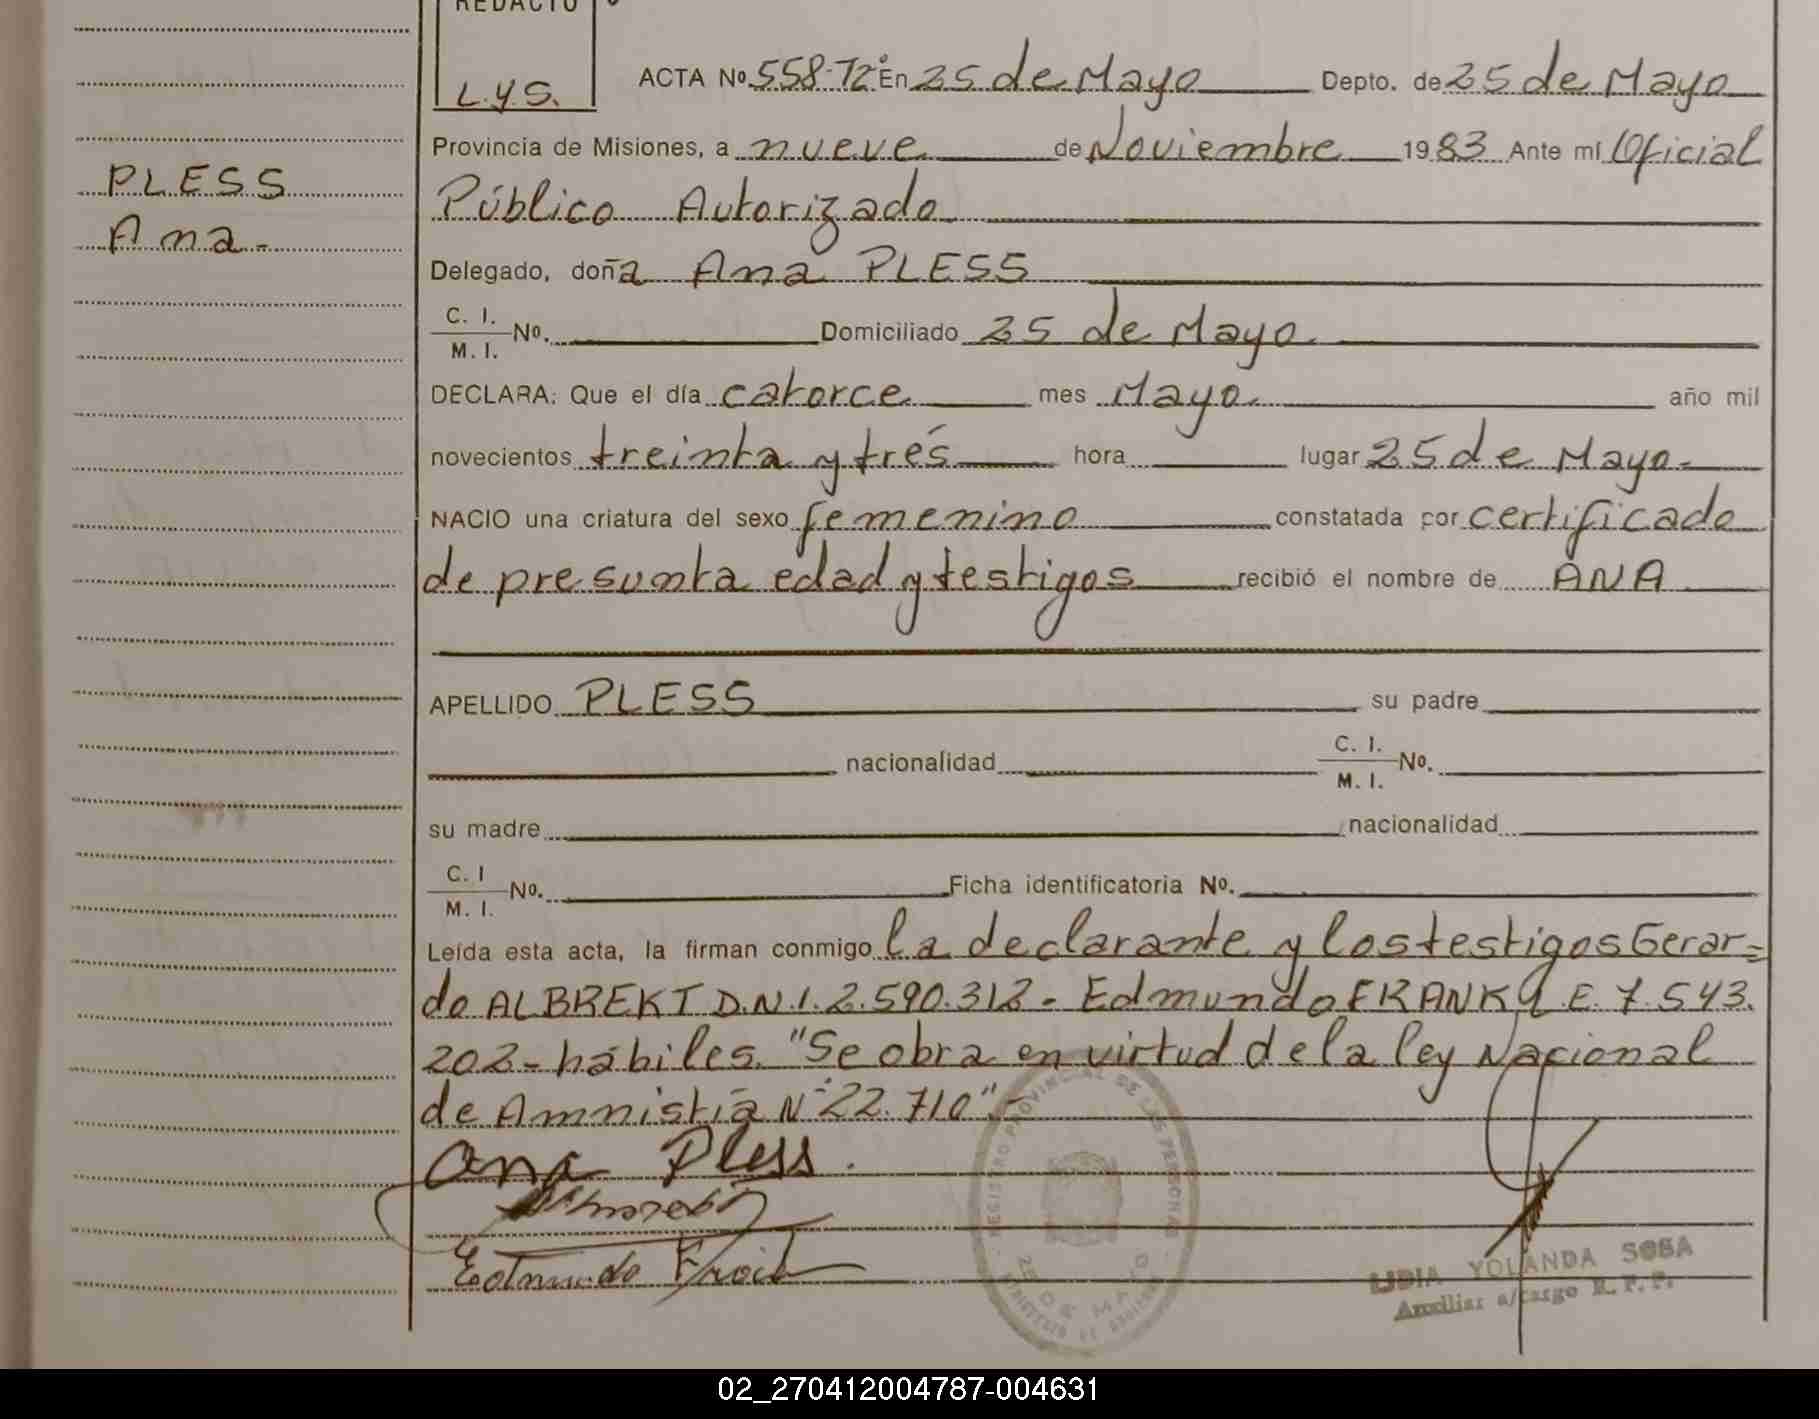 REDACTO
L.Y.S.
ACTA Nº 558-Tº2º En 25 de Mayo Depto. de 25 de Mayo
Provincia de Misiones, a nueve de Noviembre 1983 Ante mi Oficial
Público Autorizado
PLESS
Ana-
Delegado, doña Ana PLESS
C. I.
M. I. Nº. Domiciliado 25 de Mayo
DECLARA: Que el día catorce mes Mayo año mil
novecientos treinta y trés hora lugar 25 de Mayo-
NACIO una criatura del sexo femenino constatada por certificado
de presunta edad y testigos recibió el nombre de ANA
APELLIDO PLESS su padre
nacionalidad C. I.
M. I. Nº.
su madre nacionalidad
C. I
M. I. Nº. Ficha identificatoria Nº.
Leída esta acta, la firman conmigo la declarante y los testigos Gerar=
do ALBREKT D.N.I. 2.590.312- Edmundo FRANK L.E. 7.543.
202- hábiles. "Se obra en virtud de la ley Nacional
de Amnistía Nº 22.710".-
Ana Pless.
Edmundo
REGISTRO PROVINCIAL DE LAS PERSONAS
25 DE MAYO
LIDIA YOLANDA SOSA
Auxiliar a/cargo R. P. P.
02_270412004787-004631